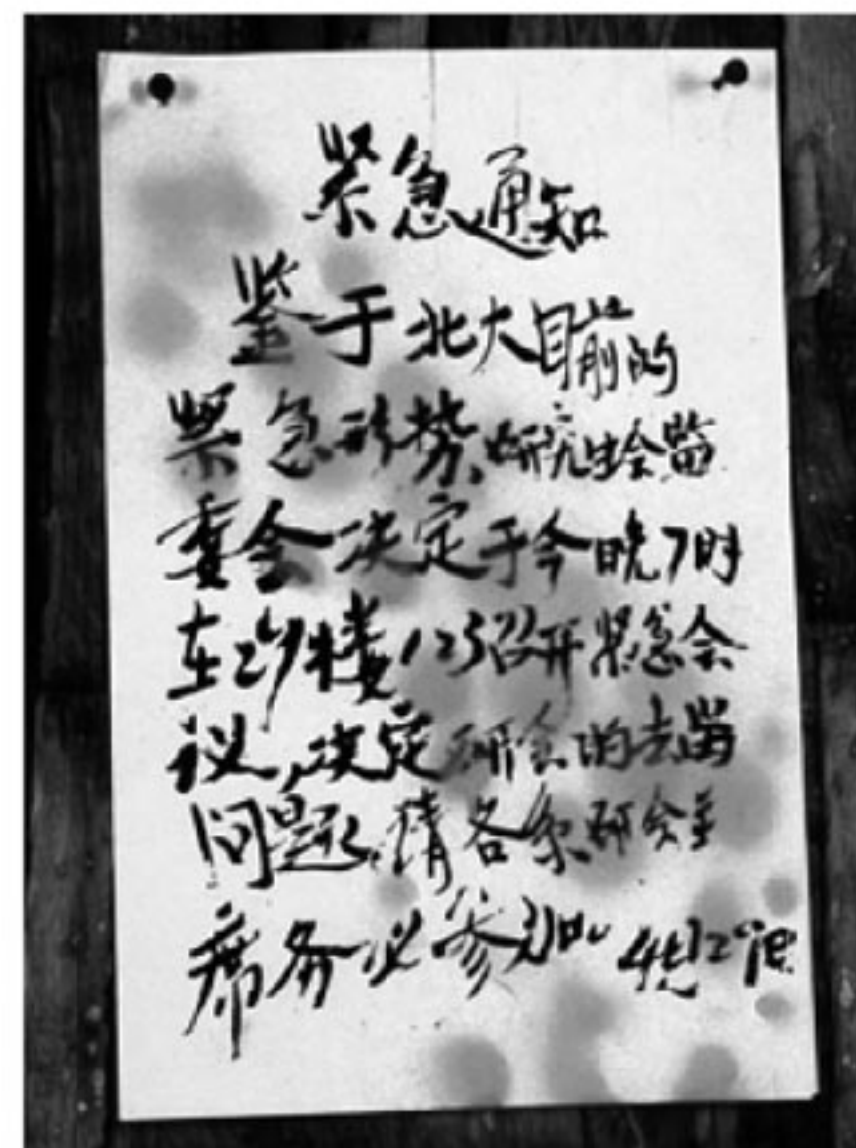 紧急通知
鉴于北大目前的
紧急形势,研究生会监
委会决定于今晚7时
在29楼123召开紧急会
议,决定研会的去留
问题,请各系研会主
席务必参加 4月20日